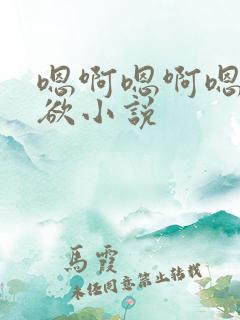 嗯啊嗯啊嗯
欲小说
馬霞
未经同意禁止转载